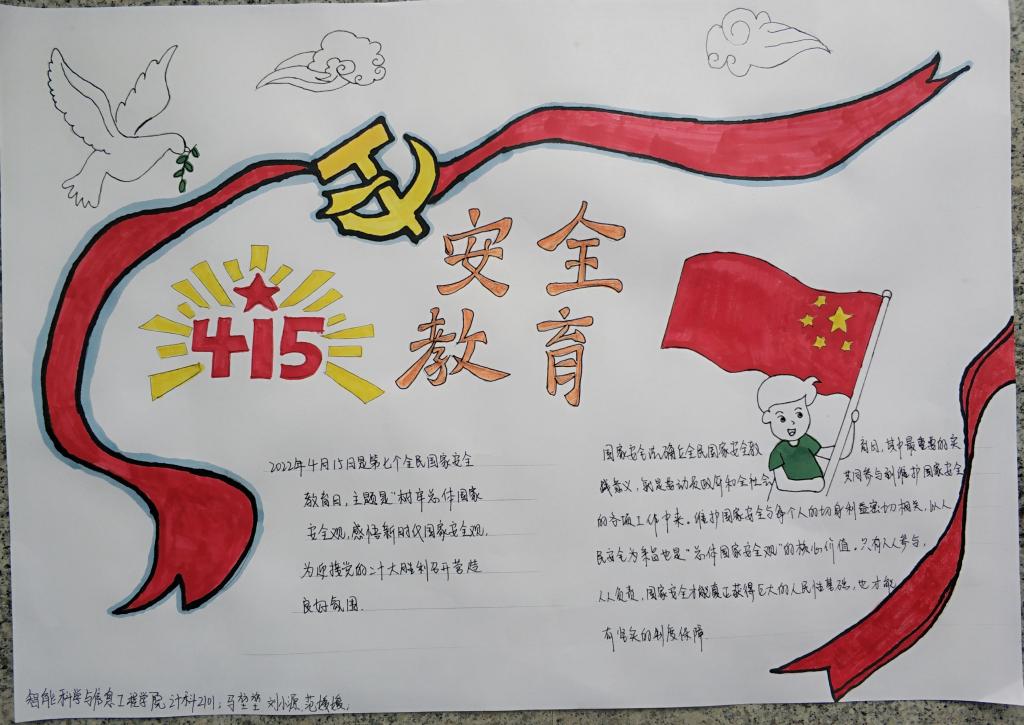 415
安全
教育
2022年4月15日是第七个全民国家安全
教育日,主题是"树牢总体国家
安全观,感悟新时代国家安全观,
为迎接党的二十大胜利召开营造
良好氛围.
国家安全法确立全民国家安全教育日,其中最重要的实
践意义,就是要动员政府和全社会共同参与到维护国家安全
的各项工作中来。维护国家安全与每个人的切身利益密切相关,以人
民安全为宗旨也是"总体国家安全观"的核心价值。只有人人参与,
人人负责,国家安全才能真正获得巨大的人民性基础,也才能
有坚实的制度保障
智能科学与信息工程学院 计科2101:马莹莹 刘小源 范媛媛